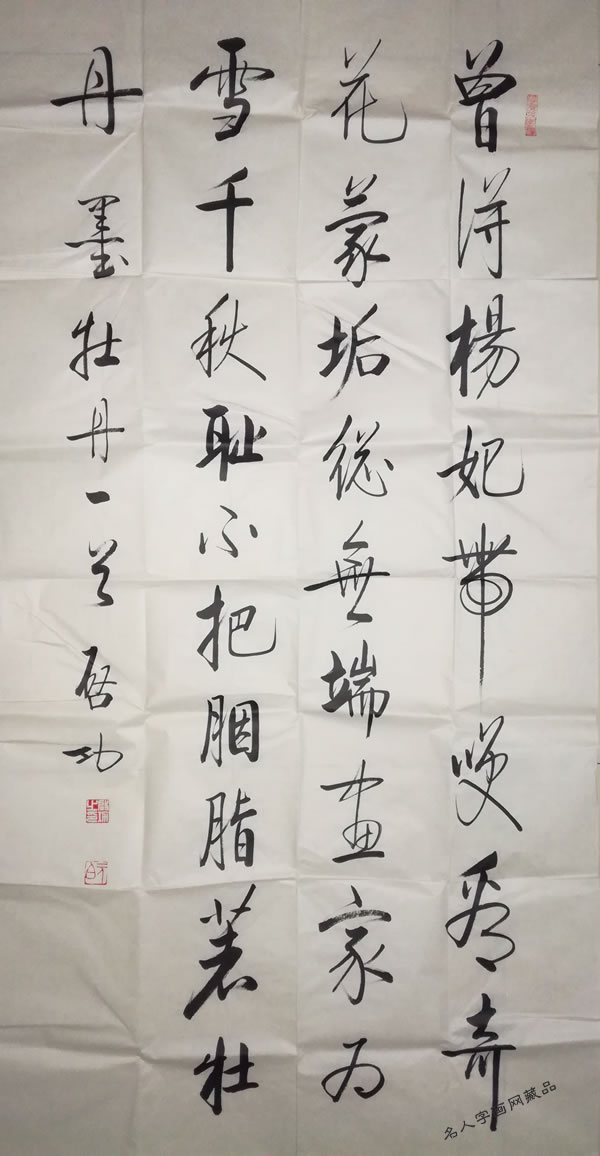 曾得楊妃帶咲看奇
花蒙垢總無端畫家为
雪千秋耻不把胭脂著牡
丹 墨牡丹一首 启功
元白
名人字画网藏品